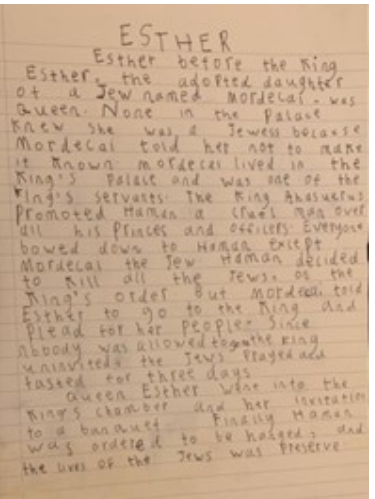 ESTHER
Esther before the King
Esther, the adopted daughter
of a Jew named Mordecai, was
Queen. None in the Palace
knew she was a Jewess because
Mordecai told her not to make
it known. mordecai lived in the
King's Palace and was one of the
King's servants. The King Ahasuerus
Promoted Haman a cruel man over
all his Princes and officers Everyone
bowed down to Haman except
Mordecai the Jew. Haman decided
to kill all the Jews, on the
King's order But mordecai told
Esther to go to the King and
Plead for her People. Since
nobody was allowed to the King
uninvited, the Jews Prayed and
fasted for three days
Queen Esther went into the
King's chamber and her invitation
to a banquet Finally Haman
was ordered to be hanged, and
the lives of the Jews was Preserve